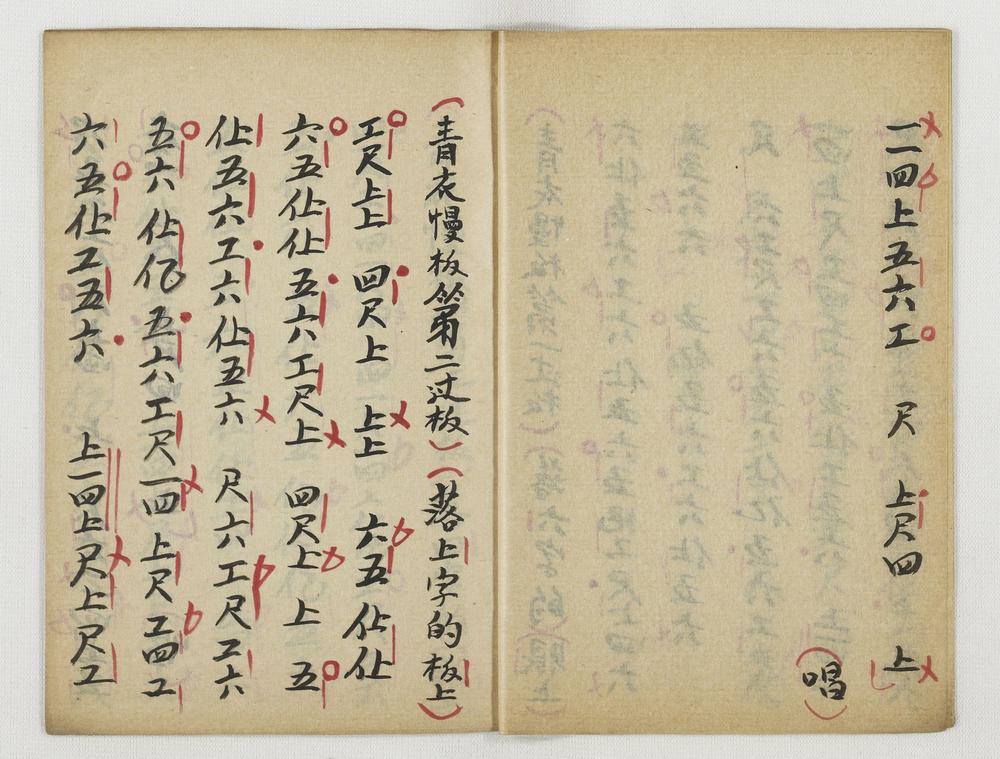 一二四上五六工 尺 上尺四 上
(唱)
(青衣慢板第二过板)(落上字的板上)
工尺上上 四尺上 上上 六五仩仩
六五仩仩五六工尺上 四尺上 上 五
仩五六工六仩五六 尺六工尺工六
五六 仩伬五六工尺一四上尺工四工
六五仩工五六 上一四上尺上尺工